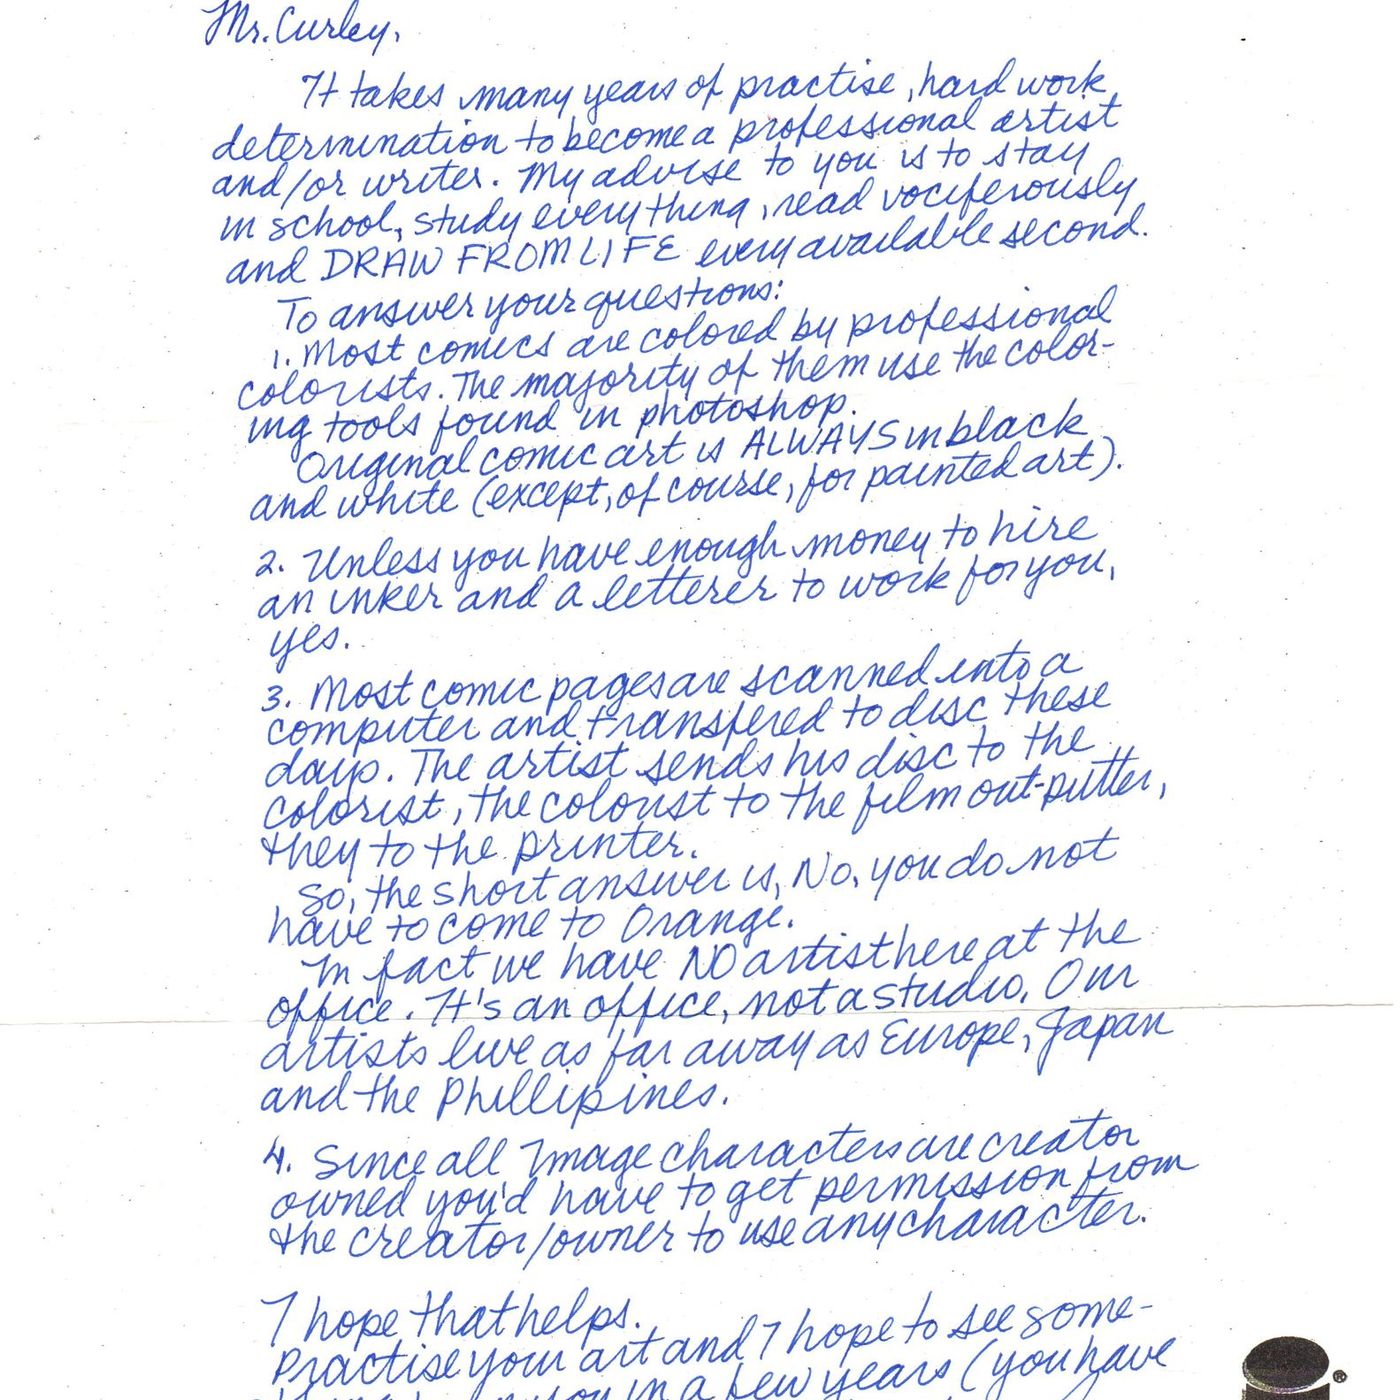 Mr. Curley,
It takes many years of practise, hard work
determination to become a professional artist
and/or writer. My advise to you is to stay
in school, study everything, read vociferously
and DRAW FROM LIFE every available second.
To answer your questions:
1. Most comics are colored by professional
colorists. The majority of them use the color-
ing tools found in photoshop.
Original comic art is ALWAYS in black
and white (except, of course, for painted art).
2. Unless you have enough money to hire
an inker and a letterer to work for you,
yes.
3. Most comic pages are scanned into a
computer and transfered to disc these
days. The artist sends his disc to the
colorist, the colorist to the film out-putter,
they to the printer.
So, the short answer is, No, you do not
have to come to Orange.
In fact we have NO artist here at the
office. It's an office, not a studio. Our
artists live as far away as Europe, Japan
and the Phillipines.
4. Since all Image characters are creator
owned you'd have to get permission from
the creator/owner to use any character.
I hope that helps.
Practise your art and I hope to see some-
you in a few years (you have
®